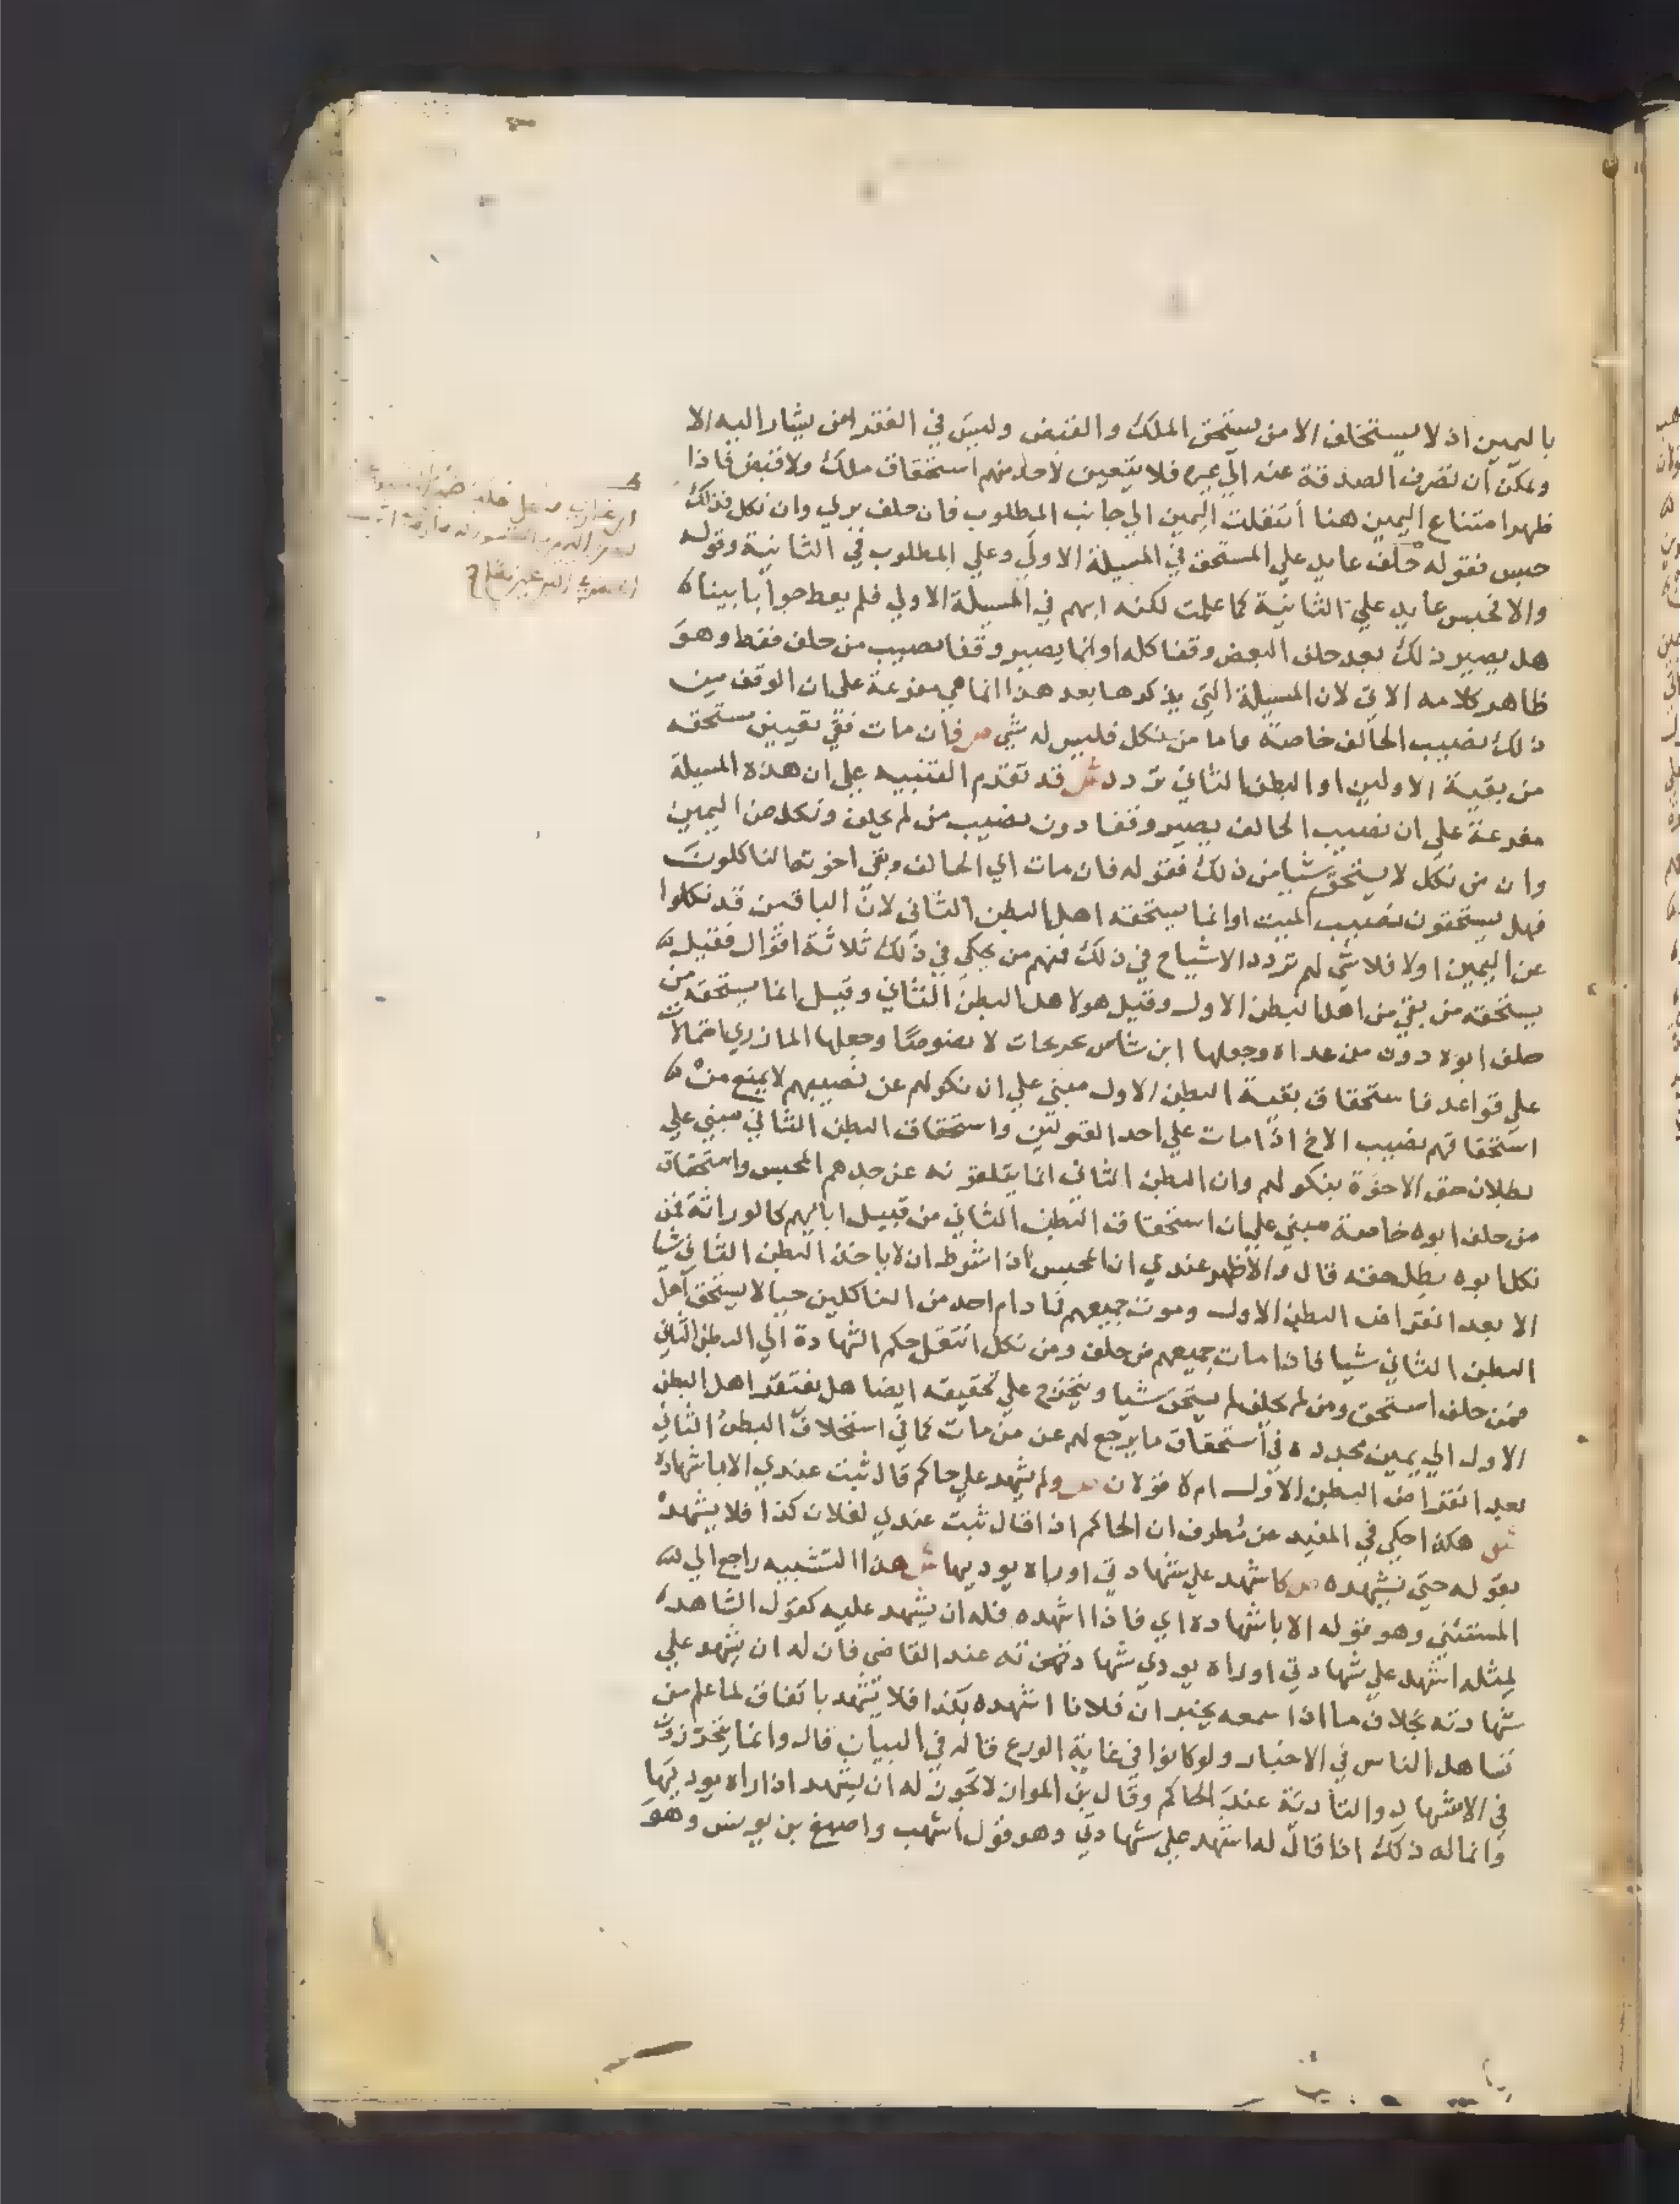 باليمين اذ لا يستحلف الا من يستحق الملك والقبض وليس في الفقرا من يشار اليه الا
ويمكن ان تصرف الصدقة عنه الي غيره فلا يتعين لاحد منهم استحقاق ملك ولا قبض فاذا
ظهر امتناع اليمين هنا انتقلت اليمين الي جانب المطلوب فان حلف بري وان نكل فذلك
حبس فقوله حلف عايد علي المستحق في المسيلة الاولي وعلي المطلوب في الثانية وقوله
والا فحبس عايد علي الثانية كما علمت لكنه ابهم في المسيلة الاولي فلم يعط جوابا بينا
هل يصير ذلك بعد حلف البعض وقفا كله او انما يصير وقفا نصيب من حلف فقط وهو
ظاهر كلامه الاتي لان المسيلة التي يذكرها بعد هذا انما هي مفرعة علي ان الوقف من
ذلك نصيب الحالف خاصة واما من نكل فليس له شي ص فان مات ففي تعيين مستحقه
من بقية الاولين او البطن الثاني تردد ش قد تقدم التنبيه علي ان هذه المسيلة
مفرعة علي ان نصيب الحالف يصير وقفا دون نصيب من لم يحلف ونكل عن اليمين
وان من نكل لا يستحق شيا من ذلك فقوله فان مات اي الحالف وبقي اخوته الناكلون
فهل يستحقون نصيب الميت او انما يستحقه اهل البطن الثاني لان الباقين قد نكلوا
عن اليمين اولا فلا شي لهم تردد الاشياخ في ذلك فمنهم من يحكي في ذلك ثلاثة اقوال فقيل
يستحقه من بقي من اهل البطن الاول وقيل هو لاهل البطن الثاني وقيل انما يستحقه من
حلف ابوه دون من عداه وجعلها ابن شاس تخريجات لا نصوصا وجعلها المازري احتمالات
علي قواعد فاستحقاق بقية البطن الاول مبني علي ان نكولهم عن نصيبهم لا يمنع من
استحقاقهم نصيب الاخ اذا مات علي احد القولين واستحقاق البطن الثاني مبني علي
بطلان حق الاخوة بنكولهم وان البطن الثاني انما يتلقونه عن جدهم المحبس واستحقاق
من حلف ابوه خاصة مبني علي ان استحقاق البطن الثاني من قبيل ابايهم كالوراثة فمن
نكل ابوه بطل حقه قال والاظهر عندي ان المحبس اذا شرط ان لا ياخذ البطن الثاني شيا
الا بعد انقراض البطن الاول وموت جميعهم فما دام احد من الناكلين حيا لا يستحق اهل
البطن الثاني شيا فاذا مات جميعهم من حلف ومن نكل انتقل حكم الشهادة الي البطن الثاني
فمن حلف استحق ومن لم يحلف لم يستحق شيا ويتخرج علي تحقيقه ايضا هل يفتقر اهل البطن
الاول الي يمين مجددة في استحقاق ما يرجع لهم عن من مات كما في استحلاف البطن الثاني
بعد انقراض البطن الاول ام لا قولان ص ولم يشهد علي حاكم قال ثبت عندي الا باشهاد
ش هكذا حكي في المفيد عن مطرف ان الحاكم اذا قال ثبت عندي لفلان كذا فلا يشهد
بقوله حتي يشهده ص كاشهد علي شهادتي او راه يوديها ش هذا التشبيه راجع الي
المستثني وهو قوله الا باشهاده اي فاذا اشهده فله ان يشهد عليه كقول الشاهد
لمثله اشهد علي شهادتي او راه يودي شهادته عند القاضي فان له ان يشهد علي
شهادته بخلاف ما اذا سمعه يخبر ان فلانا اشهده بكذا فلا يشهد باتفاق لما علم من
تساهل الناس في الاخبار ولو كانوا في غاية الورع قاله في البيان قال وانما يتحرزون
في الاشهاد والتادية عند الحاكم وقال بن المواز لا يجوز له ان يشهد اذا راه يوديها
وانما له ذلك اذا قال له اشهد علي شهادتي وهو قول اشهب واصبغ بن يونس وهو